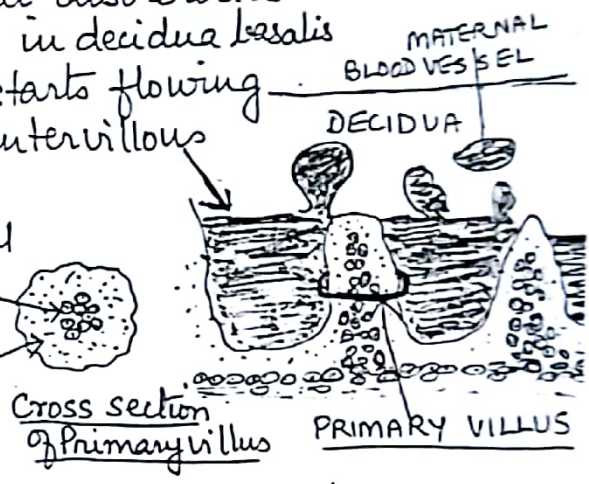 in decidua basalis
starts flowing
intervillous
MATERNAL
BLOOD VESSEL
DECIDUA
Cross section
of Primary villus
PRIMARY VILLUS